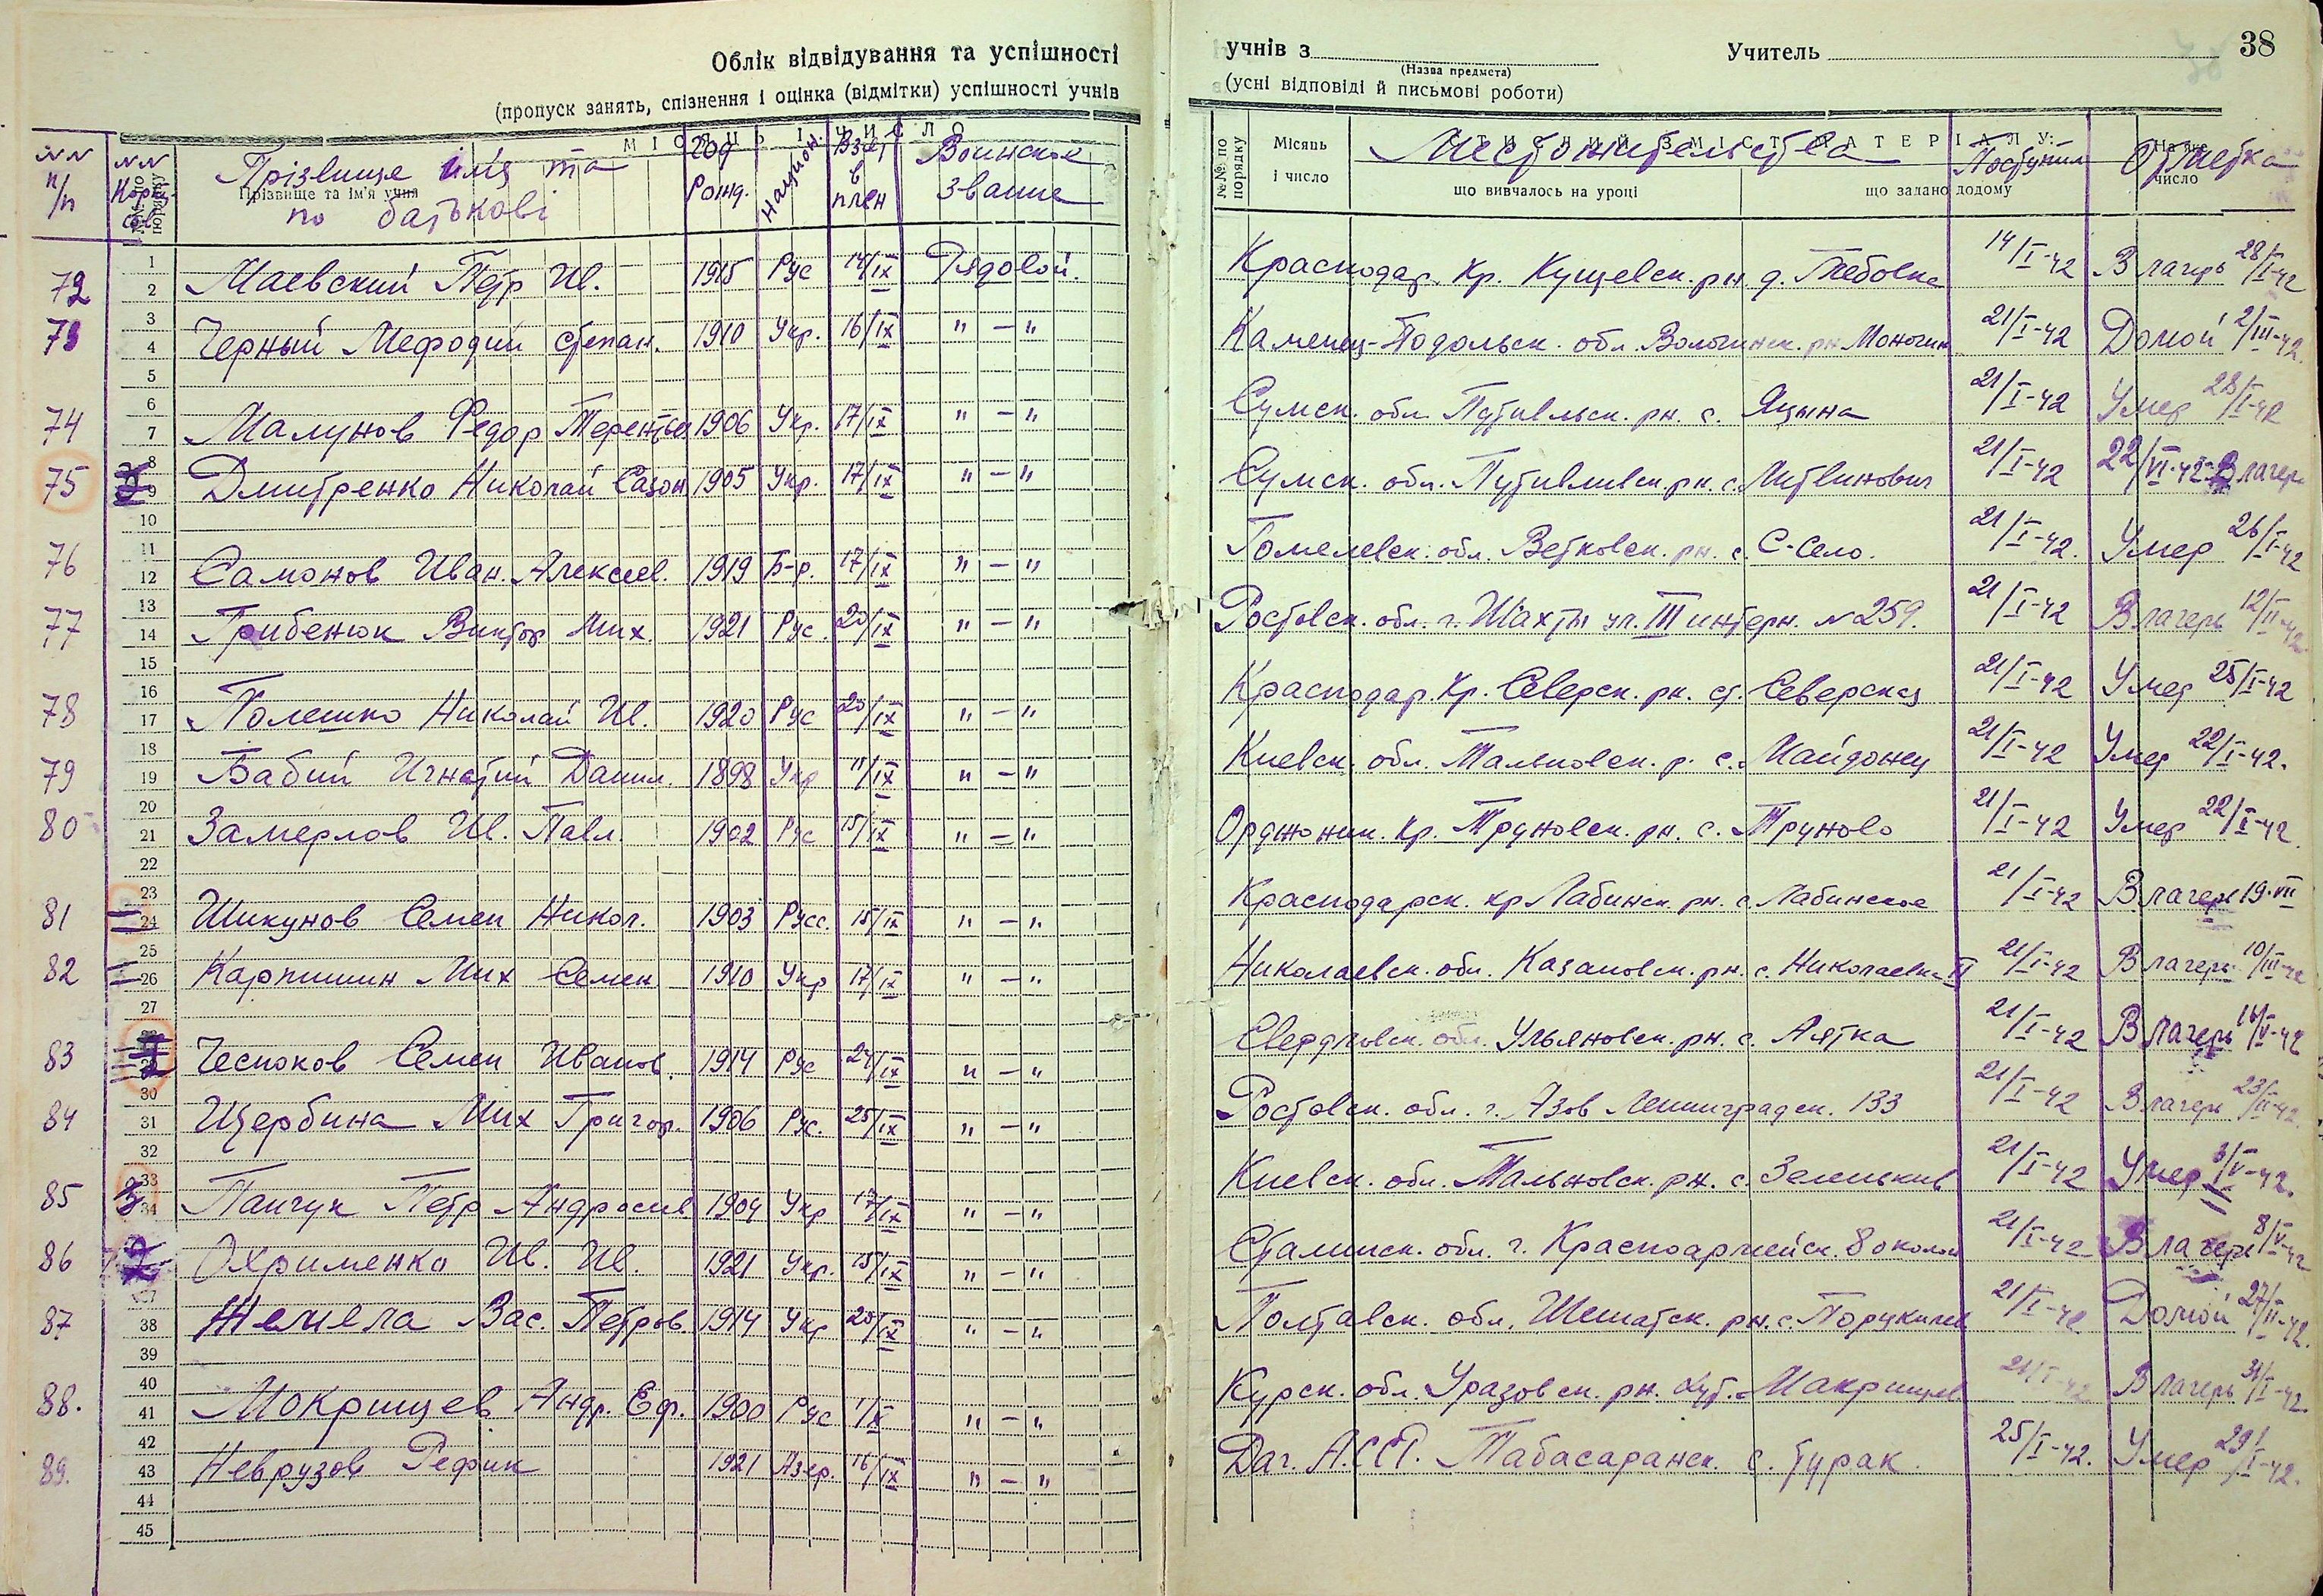 Облік відвідування та успішності
(пропуск занять, спізнення і оцінка (відмітки) успішності учнів
учнів з Учитель 38
(Назва предмета)
(усні відповіді й письмові роботи)
NN п/п NN Прізвище имя та по батькові Год рожд. Национ. Взят в плен Воинское звание
Прізвище та ім'я учня
№№ по порядку Місяць і число Местожительства Поступил Отметка
що вивчалось на уроці що задано додому число
72 Маевский Петр Ив. 1915 Рус 14/IX Рядовой. Краснодар. Кр. Кущевск. рн. д. Глебовка 14/I-42 В лагерь 28/I-42
73 Черный Мефодий Степан. 1910 Укр. 16/IX " — " Каменец-Подольск. обл. Волочинск. рн. 21/I-42 Домой 2/III-42.
74 Малунов Федор Терентьев 1906 Укр. 17/IX " — " Сумск. обл. Путивльск. рн. с. Яцына 21/I-42 Умер 28/I-42
75 Дмитренко Николай Сазон 1905 Укр. 17/IX " — " Сумск. обл. Путивливск. рн. с. Литвинович 21/I-42 22/VI-42 В лагерь
76 Самонов Иван. Алексеев. 1919 Б-р. 17/IX " — " Гомелевск. обл. Ветковск. рн. с. С-Село. 21/I-42. Умер 26/I-42
77 Грибенюк Виктор Мих. 1921 Рус. 20/IX " — " Ростовск. обл. г. Шахты ул. III интерн. N 259. 21/I-42 В лагерь 12/II-42
78 Полешко Николай Ив. 1920 Рус 20/IX " — " Краснодар. Кр. Северск. рн. ст. Северская 21/I-42 Умер 25/I-42
79 Бабий Игнатий Данил. 1898 Укр 11/IX " — " Киевск. обл. Тальновск. р. с. Майданец 21/I-42 Умер 22/I-42.
80 Замерлов Ив. Павл. 1902 Рус 15/IX " — " Орджоник. Кр. Труновск. рн. с. Труново 21/I-42 Умер 22/I-42.
81 Шикунов Семен Никол. 1903 Русс. 15/IX " — " Краснодарск. кр Лабинск. рн. с. Лабинское 21/I-42 В лагерь 19.VII
82 Карпишин Мих Семен 1910 Укр 17/IX " — " Николаевск. обл. Казановск. рн. с. Николаевка II 21/I-42 В лагерь 10/III-42
83 Чесноков Семен Иванов. 1914 Рус 24/IX " — " Свердловск. обл. Ульяновск. рн. с. Аятка 21/I-42 В лагерь 16/V-42
84 Щербина Мих Григор. 1906 Рус. 25/IX " — " Ростовск. обл. г. Азов Ленинградск. 133 21/I-42 В лагерь 23/II-42.
85 Панчук Петр Андреев 1904 Укр 17/IX " — " Киевск. обл. Тальновск. рн. с. Зеленьков 21/I-42 Умер 3/V-42.
86 Охрименко Ив. Ив. 1921 Укр. 15/IX " — " Сталинск. обл. г. Красноармейск. 21/I-42 В лагерь 8/V-42
87 Жемела Вас. Петров. 1914 Укр 20/IX " — " Полтавск. обл. Шешатск. рн. с. 21/I-42 Домой 27/II-42.
88. Мокрищев Андр. Еф. 1900 Рус 1/X " — " Курск. обл. Уразовск. рн. хут. Макрищев 21/I-42 В лагерь 31/I-42.
89. Неврузов Рефик 1921 Азер. 16/IX " — " Даг. А.ССР. Табасаранск. с. Гурак. 25/I-42. Умер 29/I-42.